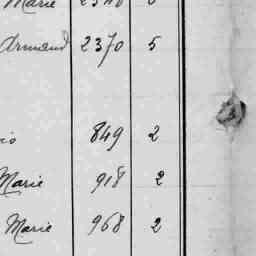 Marie
Armand 2370 5
849 2
Marie 918 2
Marie 968 2